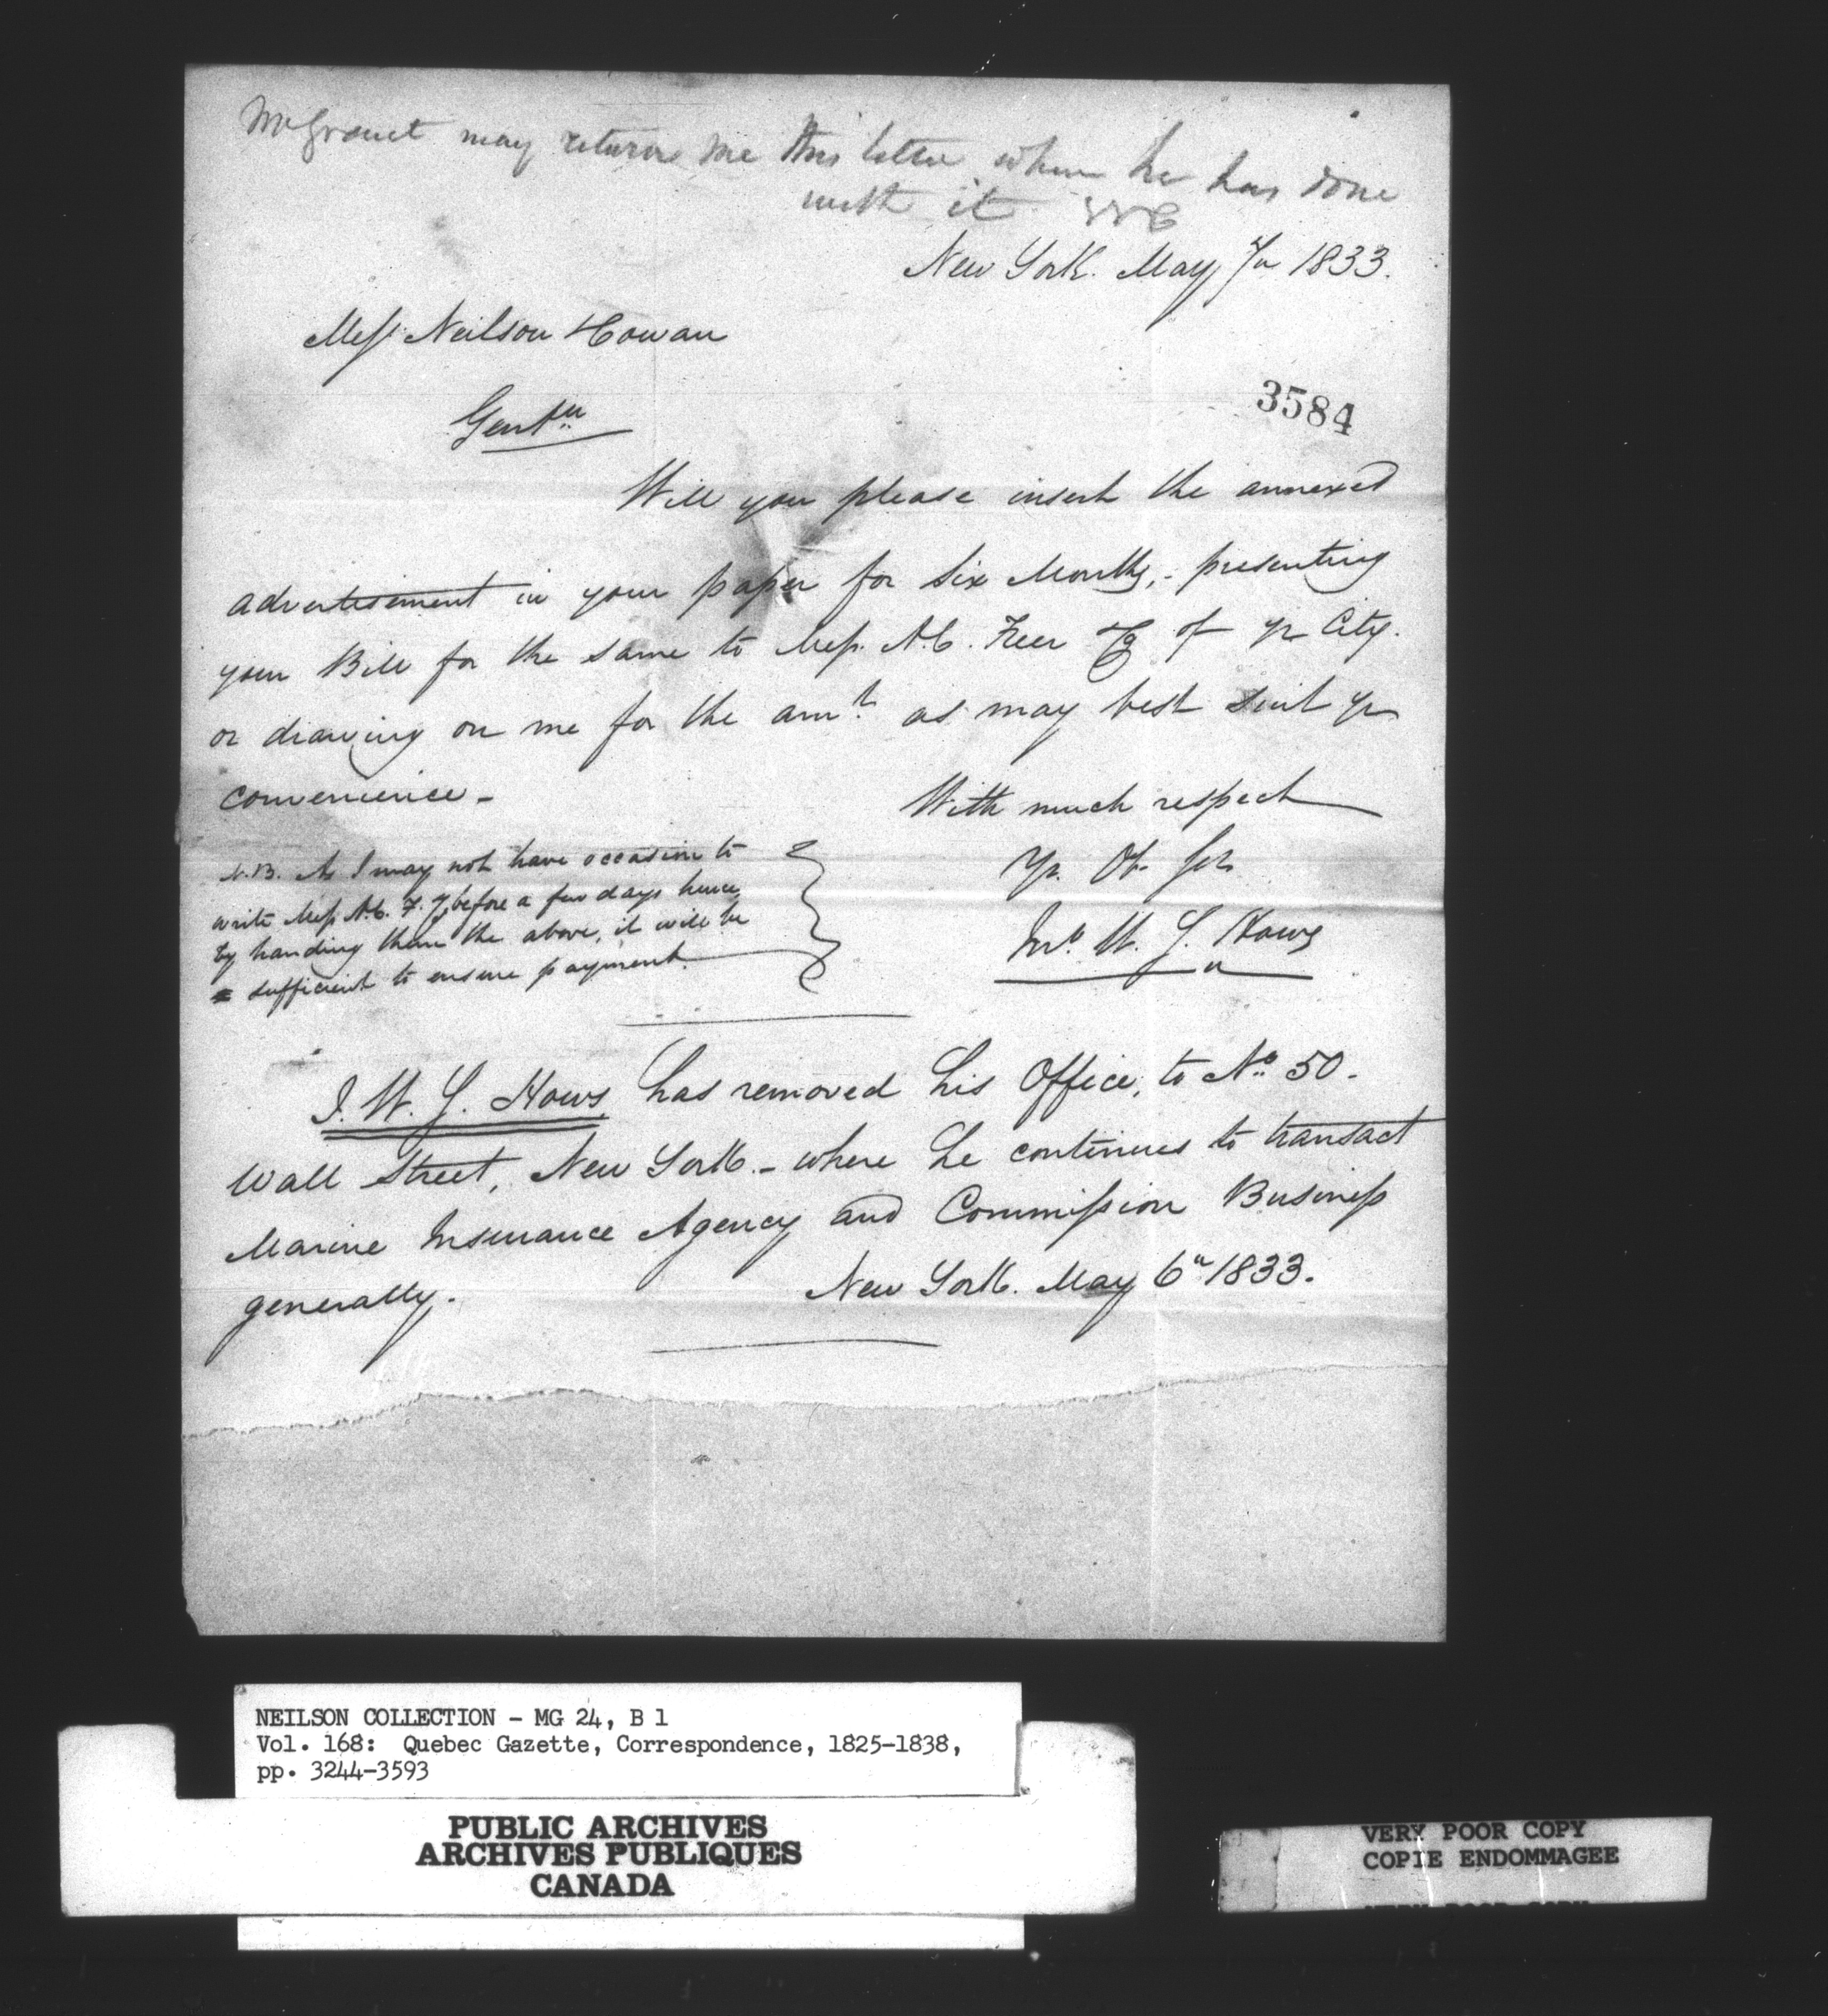 Mr Grant may return me this letter when he has done
with it WC
New York. May 7th 1833.
Mess Neilson & Cowan
3584
Gentn
Will you please insert the annexed
advertisement in your paper for six Months, - presenting
your Bill for the same to Mess. N. C. Freer & Co of yr City.
or drawing on me for the amt. as may best suit yr
convenience -
With much respect
Yr. Ob. Ser
Jno. W. S. Hows
N.B. As I may not have occasion to
write Mess N.C. F. & Co before a few days hence
by handing them the above, it will be
sufficient to ensure payment.
J. W. S. Hows has removed his Office, to No. 50.
Wall Street, New York - where he continues to transact
Marine Insurance Agency and Commission Business
generally.
New York. May 6th 1833.
NEILSON COLLECTION - MG 24, B 1
Vol. 168: Quebec Gazette, Correspondence, 1825-1838,
pp. 3244-3593
PUBLIC ARCHIVES
ARCHIVES PUBLIQUES
CANADA
VERY POOR COPY
COPIE ENDOMMAGEE